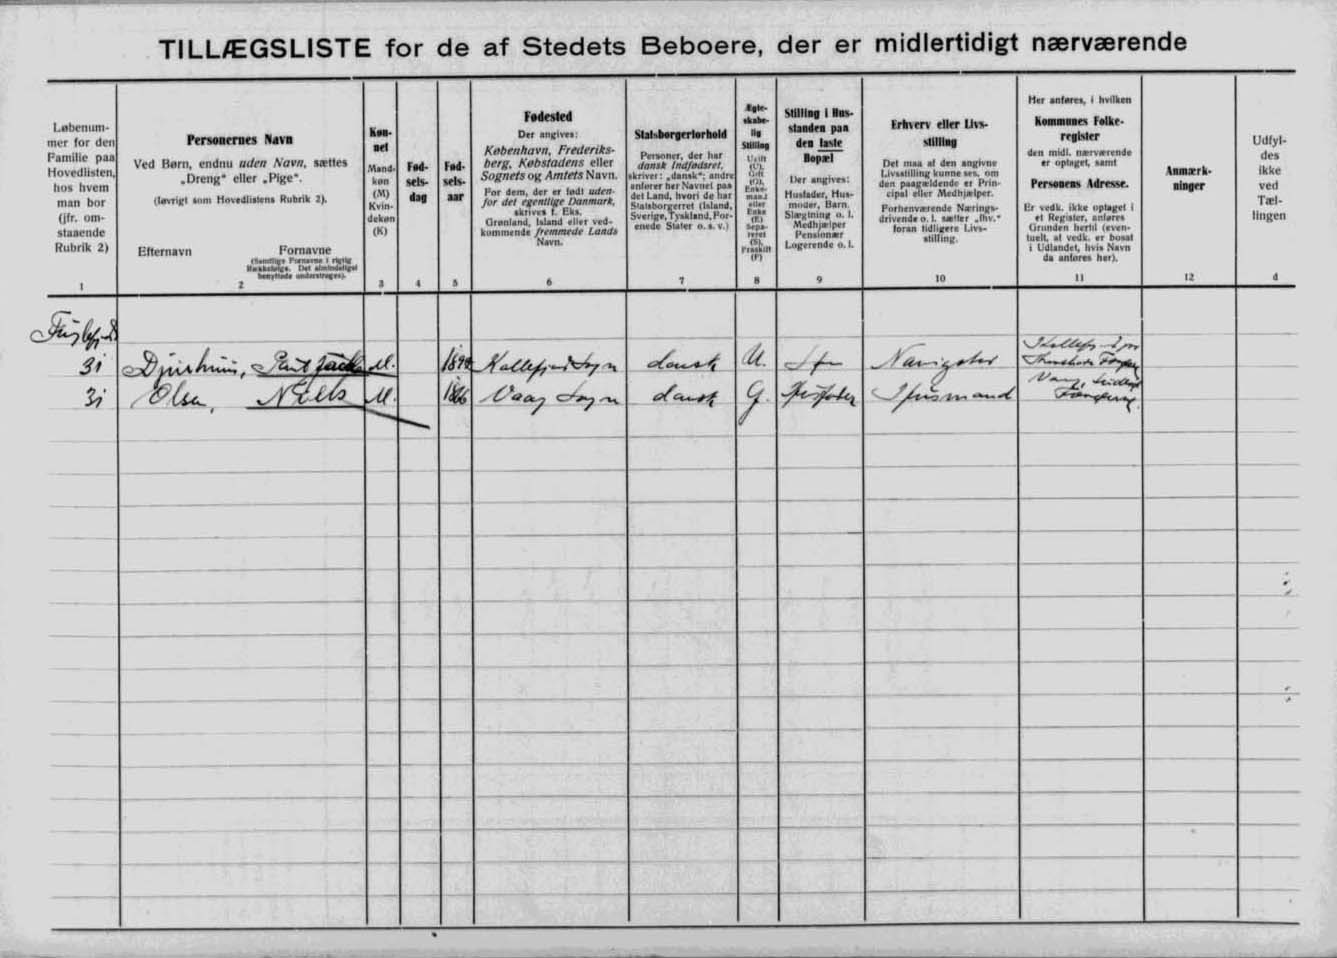 TILLÆGSLISTE for de af Stedets Beboere, der er midlertidigt nærværende
Løbenum-
mer for den
Familie paa
Hovedlisten,
hos hvem
man bor
(jfr. om-
staaende
Rubrik 2)
1
Personernes Navn
Ved Børn, endnu uden Navn, sættes
„Dreng“ eller „Pige“.
(Iøvrigt som Hovedlistens Rubrik 2).
Efternavn Fornavne
(Samtlige Fornavne i rigtig
Rækkefølge. Det almindeligst
benyttede understreges).
2
Køn-
net
Mand-
køn
(M)
Kvin-
dekøn
(K)
3
Fød-
sels-
dag
4
Fød-
sels-
aar
5
Fødested
Der angives:
København, Frederiks-
berg, Købstadens eller
Sognets og Amtets Navn.
For dem, der er født uden-
for det egentlige Danmark,
skrives f. Eks.
Grønland, Island eller ved-
kommende fremmede Lands
Navn.
6
Statsborgerforhold
Personer, der har
dansk Indfødsret,
skriver: „dansk“; andre
anfører her Navnet paa
det Land, hvori de har
Statsborgerret (Island,
Sverige, Tyskland, For-
enede Stater o. s. v.)
7
Ægte-
skabe-
lig
Stilling
Ugift
(U),
Gift
(G),
Enke-
mand
eller
Enke
(E)
Sepa-
reret
(S),
Fraskilt
(F)
8
Stilling i Hus-
standen paa
den faste
Bopæl
Der angives:
Husfader, Hus-
moder, Barn,
Slægtning o. l.
Medhjælper
Pensionær
Logerende o. l.
9
Erhverv eller Livs-
stilling
Det maa af den angivne
Livsstilling kunne ses, om
den paagældende er Prin-
cipal eller Medhjælper.
Forhenværende Nærings-
drivende o. l. sætter „fhv.“
foran tidligere Livs-
stilling.
10
Her anføres, i hvilken
Kommunes Folke-
register
den midl. nærværende
er optaget, samt
Personens Adresse.
Er vedk. ikke optaget i
et Register, anføres
Grunden hertil (even-
tuelt, at vedk. er bosat
i Udlandet, hvis Navn
da anføres her).
11
Anmærk-
ninger
12
Udfyl-
des
ikke
ved
Tæl-
lingen
d
31 M. dansk U. Navigatør
31 Olsen, Niels M. 1866 Vaag Sogn dansk G. Husfader Husmand